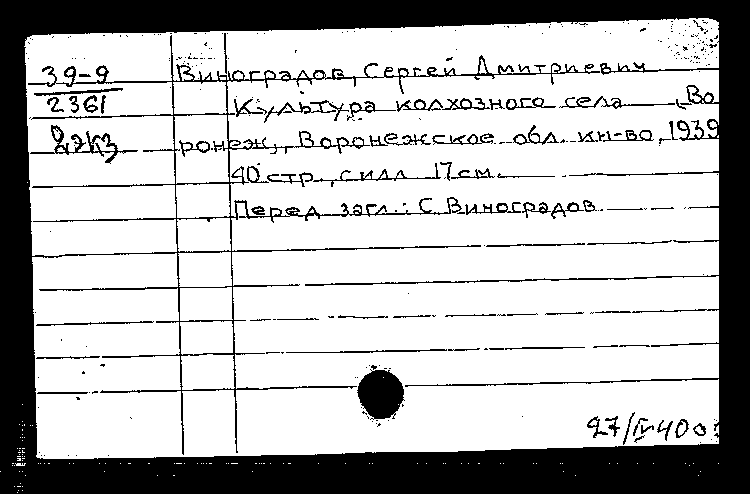 39-9
2361
2 экз
Виноградов, Сергей Дмитриевич
Культура колхозного села. Во
ронеж, Воронежское обл. кн-во, 1939
40 стр., с илл 17 см.
Перед загл.: С. Виноградов.
27/IV-40